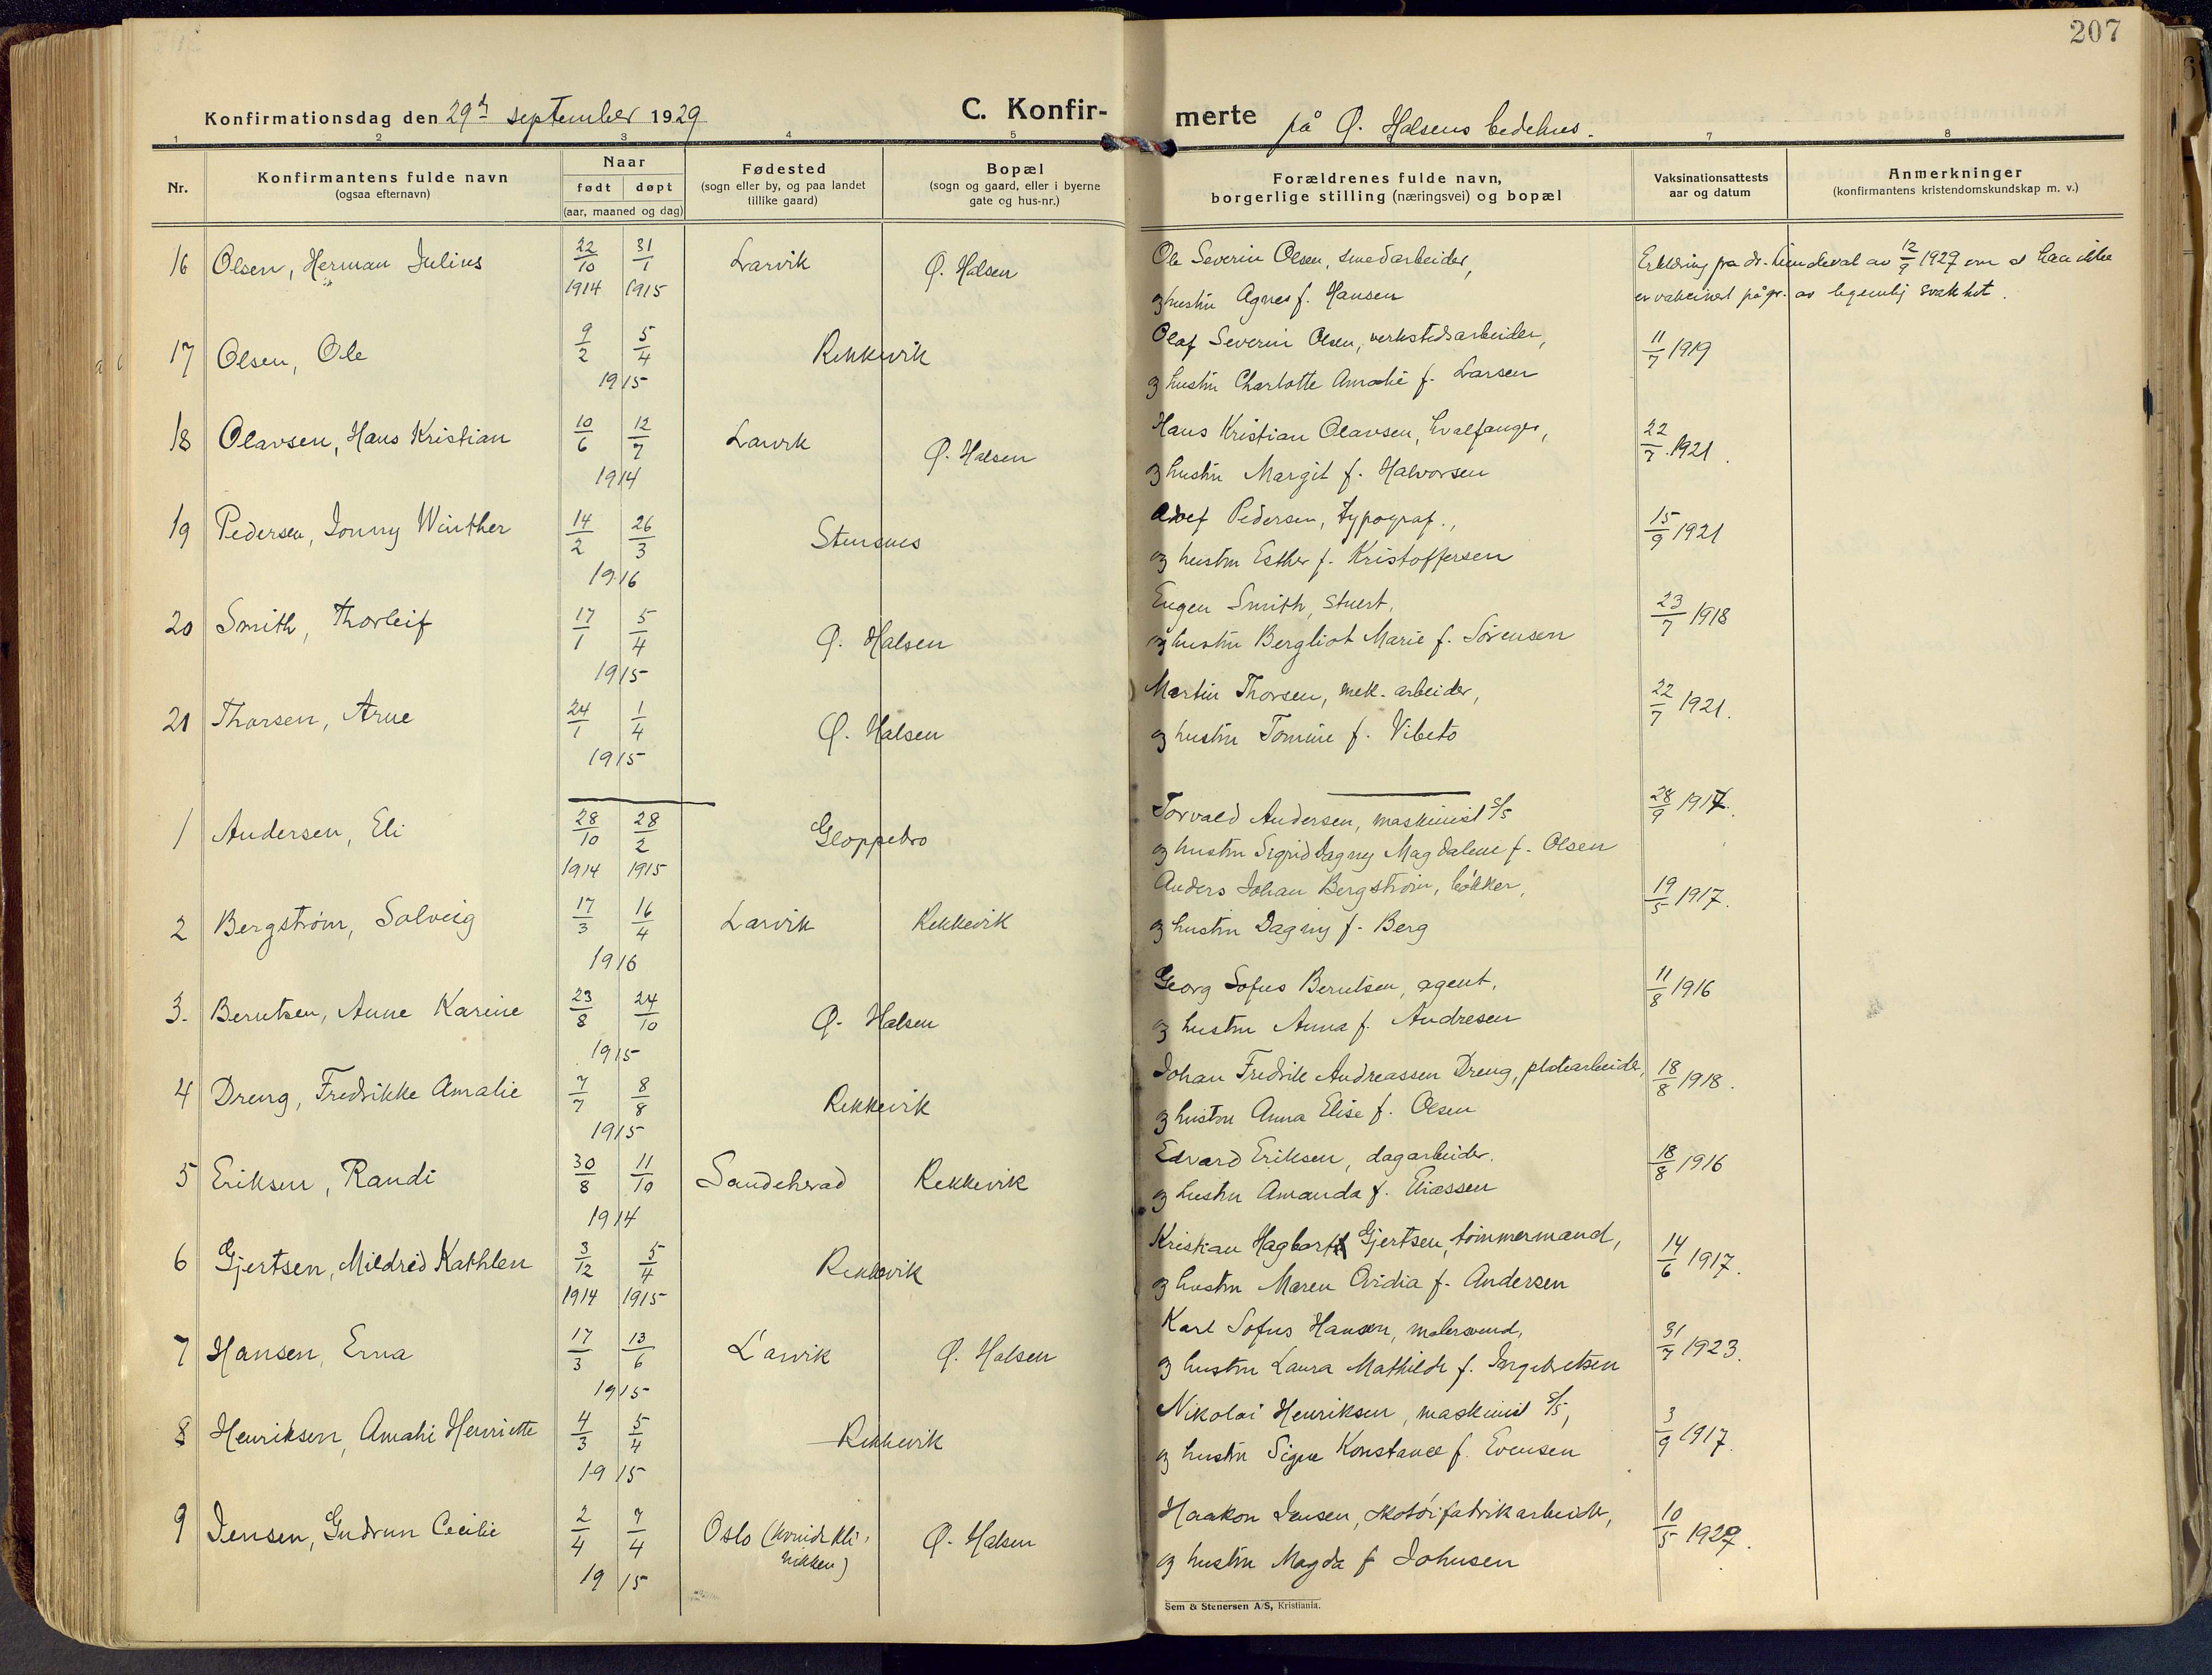 207
Konfirmationsdag den 29de september 1929 C. Konfir- merte på Ø. Halsens bedehus.
1 2 3 4 5 7 8
Nr. Konfirmantens fulde navn (ogsaa efternavn) Naar født døpt (aar, maaned og dag) Fødested (sogn eller by, og paa landet tillike gaard) Bopæl (sogn og gaard, eller i byerne gate og hus-nr.) Forældrenes fulde navn, borgerlige stilling (næringsvei) og bopæl Vaksinationsattests aar og datum Anmerkninger (konfirmantens kristendomskundskap m. v.)
16 Olsen, Herman Julius 22/10 1914 31/1 1915 Larvik Ø. Halsen Ole Severin Olsen, smedarbeider, Erklæring fra dr. av 12/9 1927 om at han ikke
og hustru Agnes f. Hansen er vakcinert på gr. av legemlig svakhet.
17 Olsen, Ole 9/2 5/4 1915 Rekkevik Olaf Severin Olsen, verkstedsarbeider, 11/7 1919
og hustru Charlotte Amalie f. Larsen
18 Olavsen, Hans Kristian 10/6 12/7 1914 Larvik Ø. Halsen Hans Kristian Olavsen, hvalfanger, 22/7 1921.
og hustru Margit f. Halvorsen
19 Pedersen, Jonny Winther 14/2 26/3 1916 Stensnes Pedersen, typograf., 15/9 1921
og hustru Esther f. Kristoffersen
20 Smith, Thorleif 17/1 5/4 1915 Ø. Halsen Eugen Smith, stuert, 23/7 1918
og hustru Bergliot Marie f. Sørensen
21 Thorsen, Arne 24/1 1/4 1915 Ø. Halsen Martin Thorsen, mek. arbeider, 22/7 1921.
og hustru Tomine f. Vibeto
1 Andersen, Eli 28/10 1914 28/2 1915 Gloppebro Torvald Andersen, maskinist S/S 28/9 1917.
og hustru Sigrid Dagny Magdalene f. Olsen
2 Bergstrøm, Solveig 17/3 16/4 1916 Larvik Rekkevik Anders Johan Bergstrøm, bøkker, 19/5 1917.
og hustru Dagny f. Berg
3. Berntsen, Anne Karine 23/8 24/10 1915 Ø. Halsen Georg Sofus Berntsen, agent, 11/8 1916
og hustru Anna f. Andresen
4 Dreng, Fredrikke Amalie 7/7 8/8 1915 Rekkevik Johan Fredrik Andreassen Dreng, platearbeider, 18/8 1918.
og hustru Anna Elise f. Olsen
5 Eriksen, Randi 30/8 11/10 1914 Sandeherad Rekkevik Edvard Eriksen, dagarbeider. 18/8 1916
og hustru Amanda f. Eliassen
6 Gjertsen, Mildred Kathlen 3/12 1914 5/4 1915 Rekkevik Kristian Hagbart Gjertsen, tømmermand, 14/6 1917.
og hustru Maren Ovidia f. Andersen
7 Hansen, Erna 17/3 13/6 1915 Larvik Ø. Halsen Karl Sofus Hansen, malersvend, 31/7 1923.
og hustru Laura Mathilde f. Ingebretsen
8 Henriksen, Amalie Henriette 4/3 5/4 1915 Rekkevik Nikolai Henriksen, maskinist S/S, 3/9 1917.
og hustru Signe Konstance f. Evensen
9 Jensen, Gudrun Cecilie 2/4 7/4 1915 Oslo (kvindekli- nikken) Ø. Halsen Haakon Jensen, skotøifabrikarbeider, 10/5 1927.
og hustru Magda f Johnsen
Sem & Stenersen A/S, Kristiania.